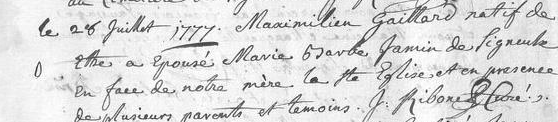 le 28 Juillet 1777. Maximilien Gaillard natif de
Ethe a Epousé Marie Barbe Jamin de Signeulx
en face de notre mère la Ste Eglise et en presence
de plusieurs parents et temoins. J: Ribone Curé